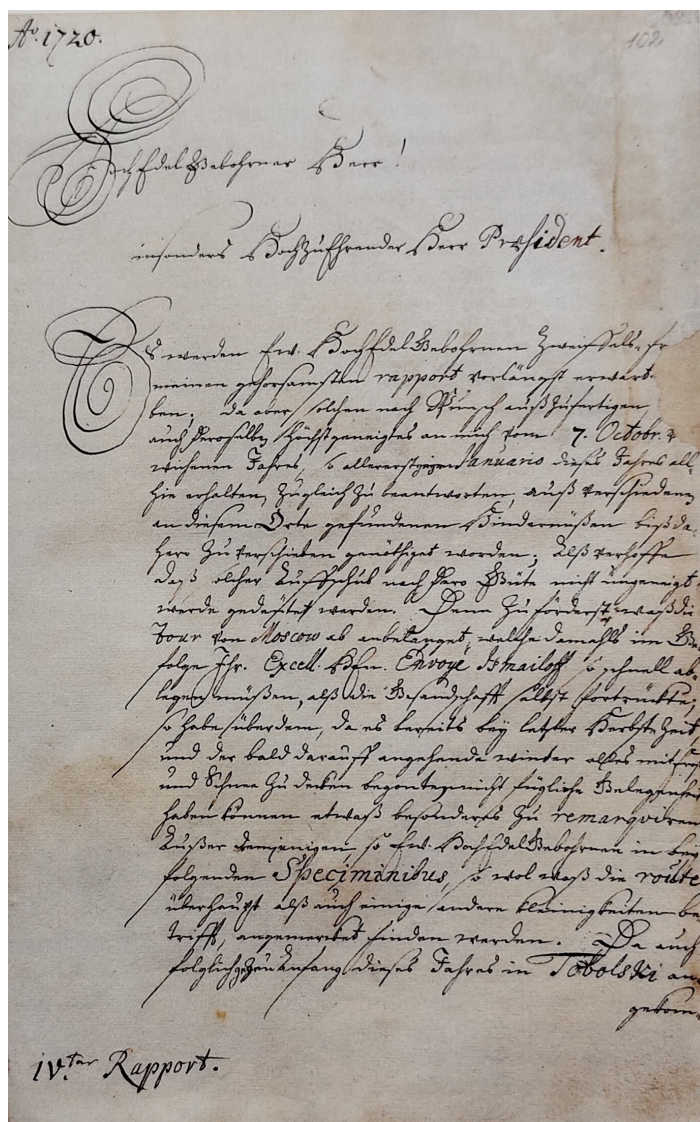 Aº. 1720.
102
HochEdelGebohrner Herr!
insonders HochZuEhrender Herr Præsident.
Es werden Ew. HochEdelGebohrnen Zweiffels-fr
meinen gehorsamsten rapport vorlängst erwart
ben; da aber solchen nach Wunsch außzufertigen,
auch Deroselben höchstgeneigtes an mich vom 7. Octobr.
wichenen Jahres, so allererst Januario dieses Jahres all-
hie erhalten, zugleich zu beantworten, auß verschiedenen
an diesem Orte gefundenen Hindernüßen bißda-
hero zu verschieben genöthiget worden; Alß verhoffe
daß solcher Auffschub nach Dero Güte nicht ungeneigt
werde gedeütet werden. Denn zu förderst waß die
tour von Moscow ab anbelanget, welche damahls im Ge-
folge Ihr. Excell. Hfn. Envoyé Ismailoff so schnell ab-
legen müßen, alß die Gesandschafft selbst fortrückte;
so habe überdem, da es bereits bey letster Herbste Zeit
und der bald darauff angehende winter alles mit
und Schnee zu decken begonte, nicht fügliche Gelegenhei
haben können etwaß besonders zu remarqviren
Außer demjenigen so Ew. HochEdelGebohrnen in bey
folgenden Speciminibus, so wol waß die route
überhaupt alß auch einige andere kleinigkeiten be-
trifft, angemercket finden werden. Da auch
folglich zu Anfang dieses Jahres in Tobolski an-
gekom-
IVter Rapport.